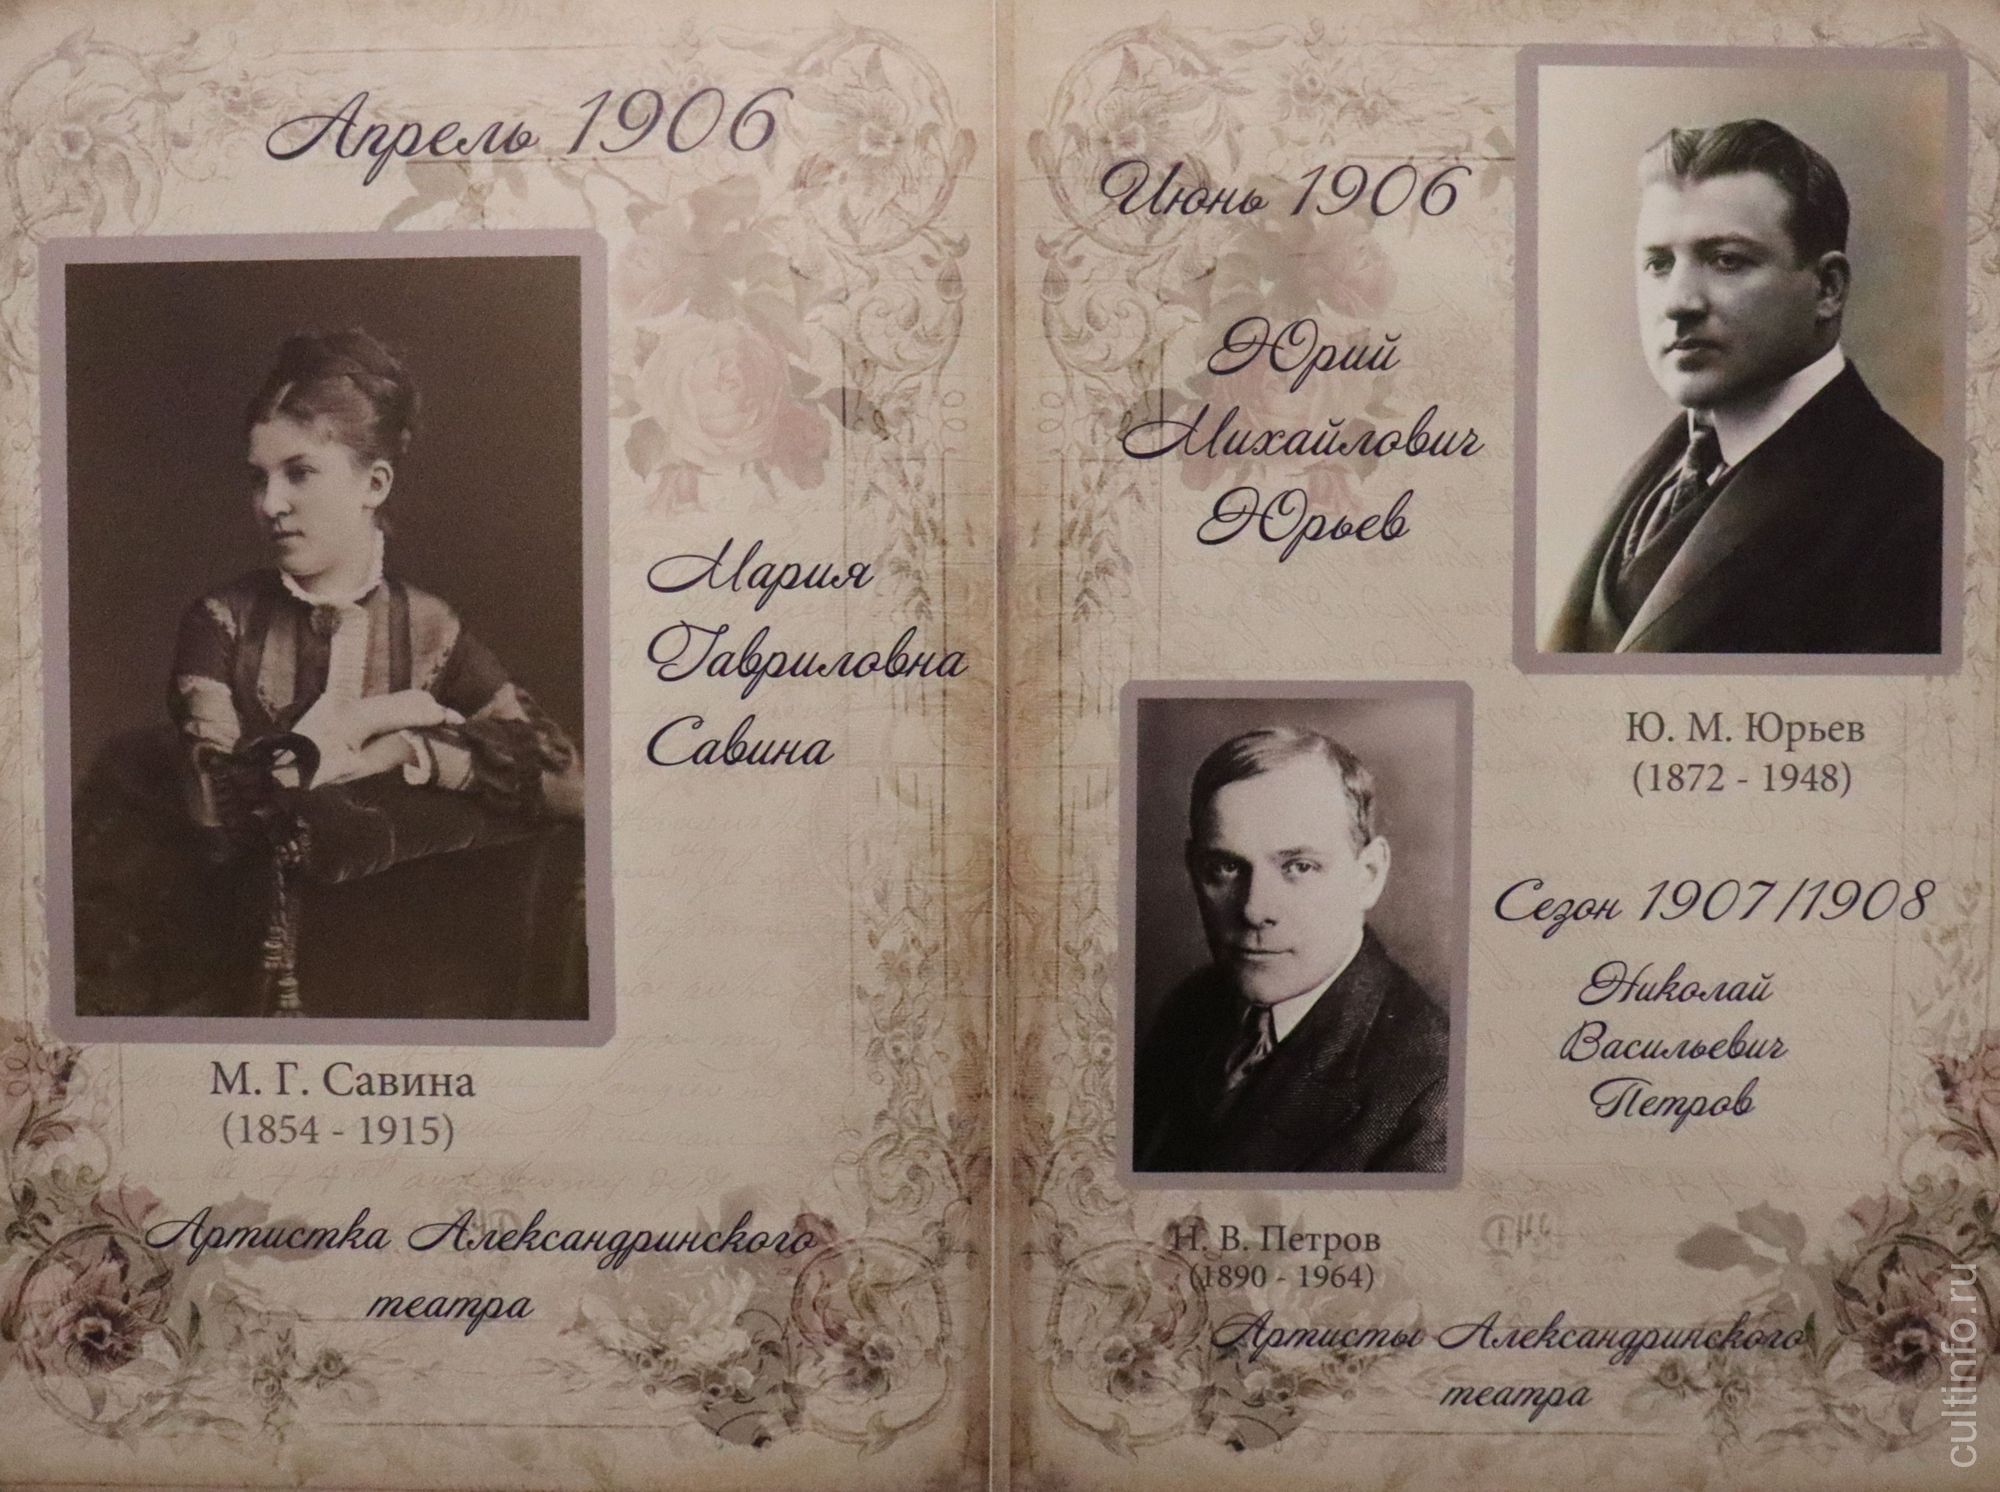 Апрель 1906
Мария
Гавриловна
Савина
М. Г. Савина
(1854 - 1915)
Артистка Александринского
театра
Июнь 1906
Юрий
Михайлович
Юрьев
Ю. М. Юрьев
(1872 - 1948)
Сезон 1907/1908
Николай
Васильевич
Петров
Н. В. Петров
(1890 - 1964)
Артисты Александринского
театра
cultinfo.ru